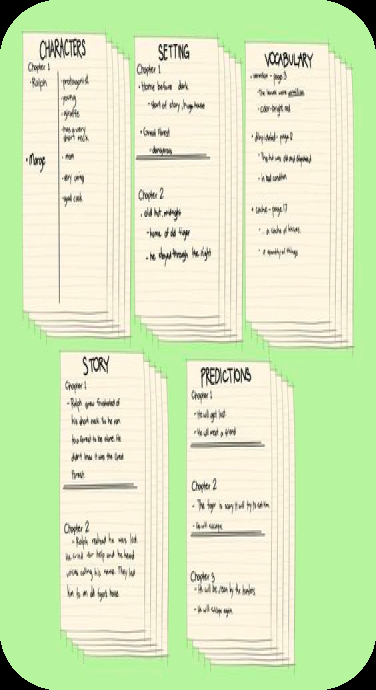 CHARACTERS
Chapter 1
• Ralph
- protagonist
- young
- giraffe
- has a very
short neck
• Marge
- mom
- very caring
- good cook
SETTING
Chapter 1
• Home before dark
- start of story / huge house
• Great Forest
- dangerous
Chapter 2
• old hut, midnight
- home of old tiger
- he stayed through the night
VOCABULARY
Chapter 1
• vermilion - page 3
- The leaves were vermilion
- color - bright red
- page 8
- The hut was old and dilapidated
- in bad condition
• cache - page 17
- ... a cache of leaves
- a quantity of things
STORY
Chapter 1
- Ralph grew frustrated of
his short neck. So he ran
to a forest to be alone. He
didn't know it was the Great
Forest
Chapter 2
- Ralph realized he was lost
He cried for help and he heard
voices calling his name. They led
him to an old tigers house
PREDICTIONS
Chapter 1
- He will get lost
- He will meet a friend
Chapter 2
- The tiger is scary it will try to eat him
- He will escape
Chapter 3
- He will be seen by the hunters
- He will escape again